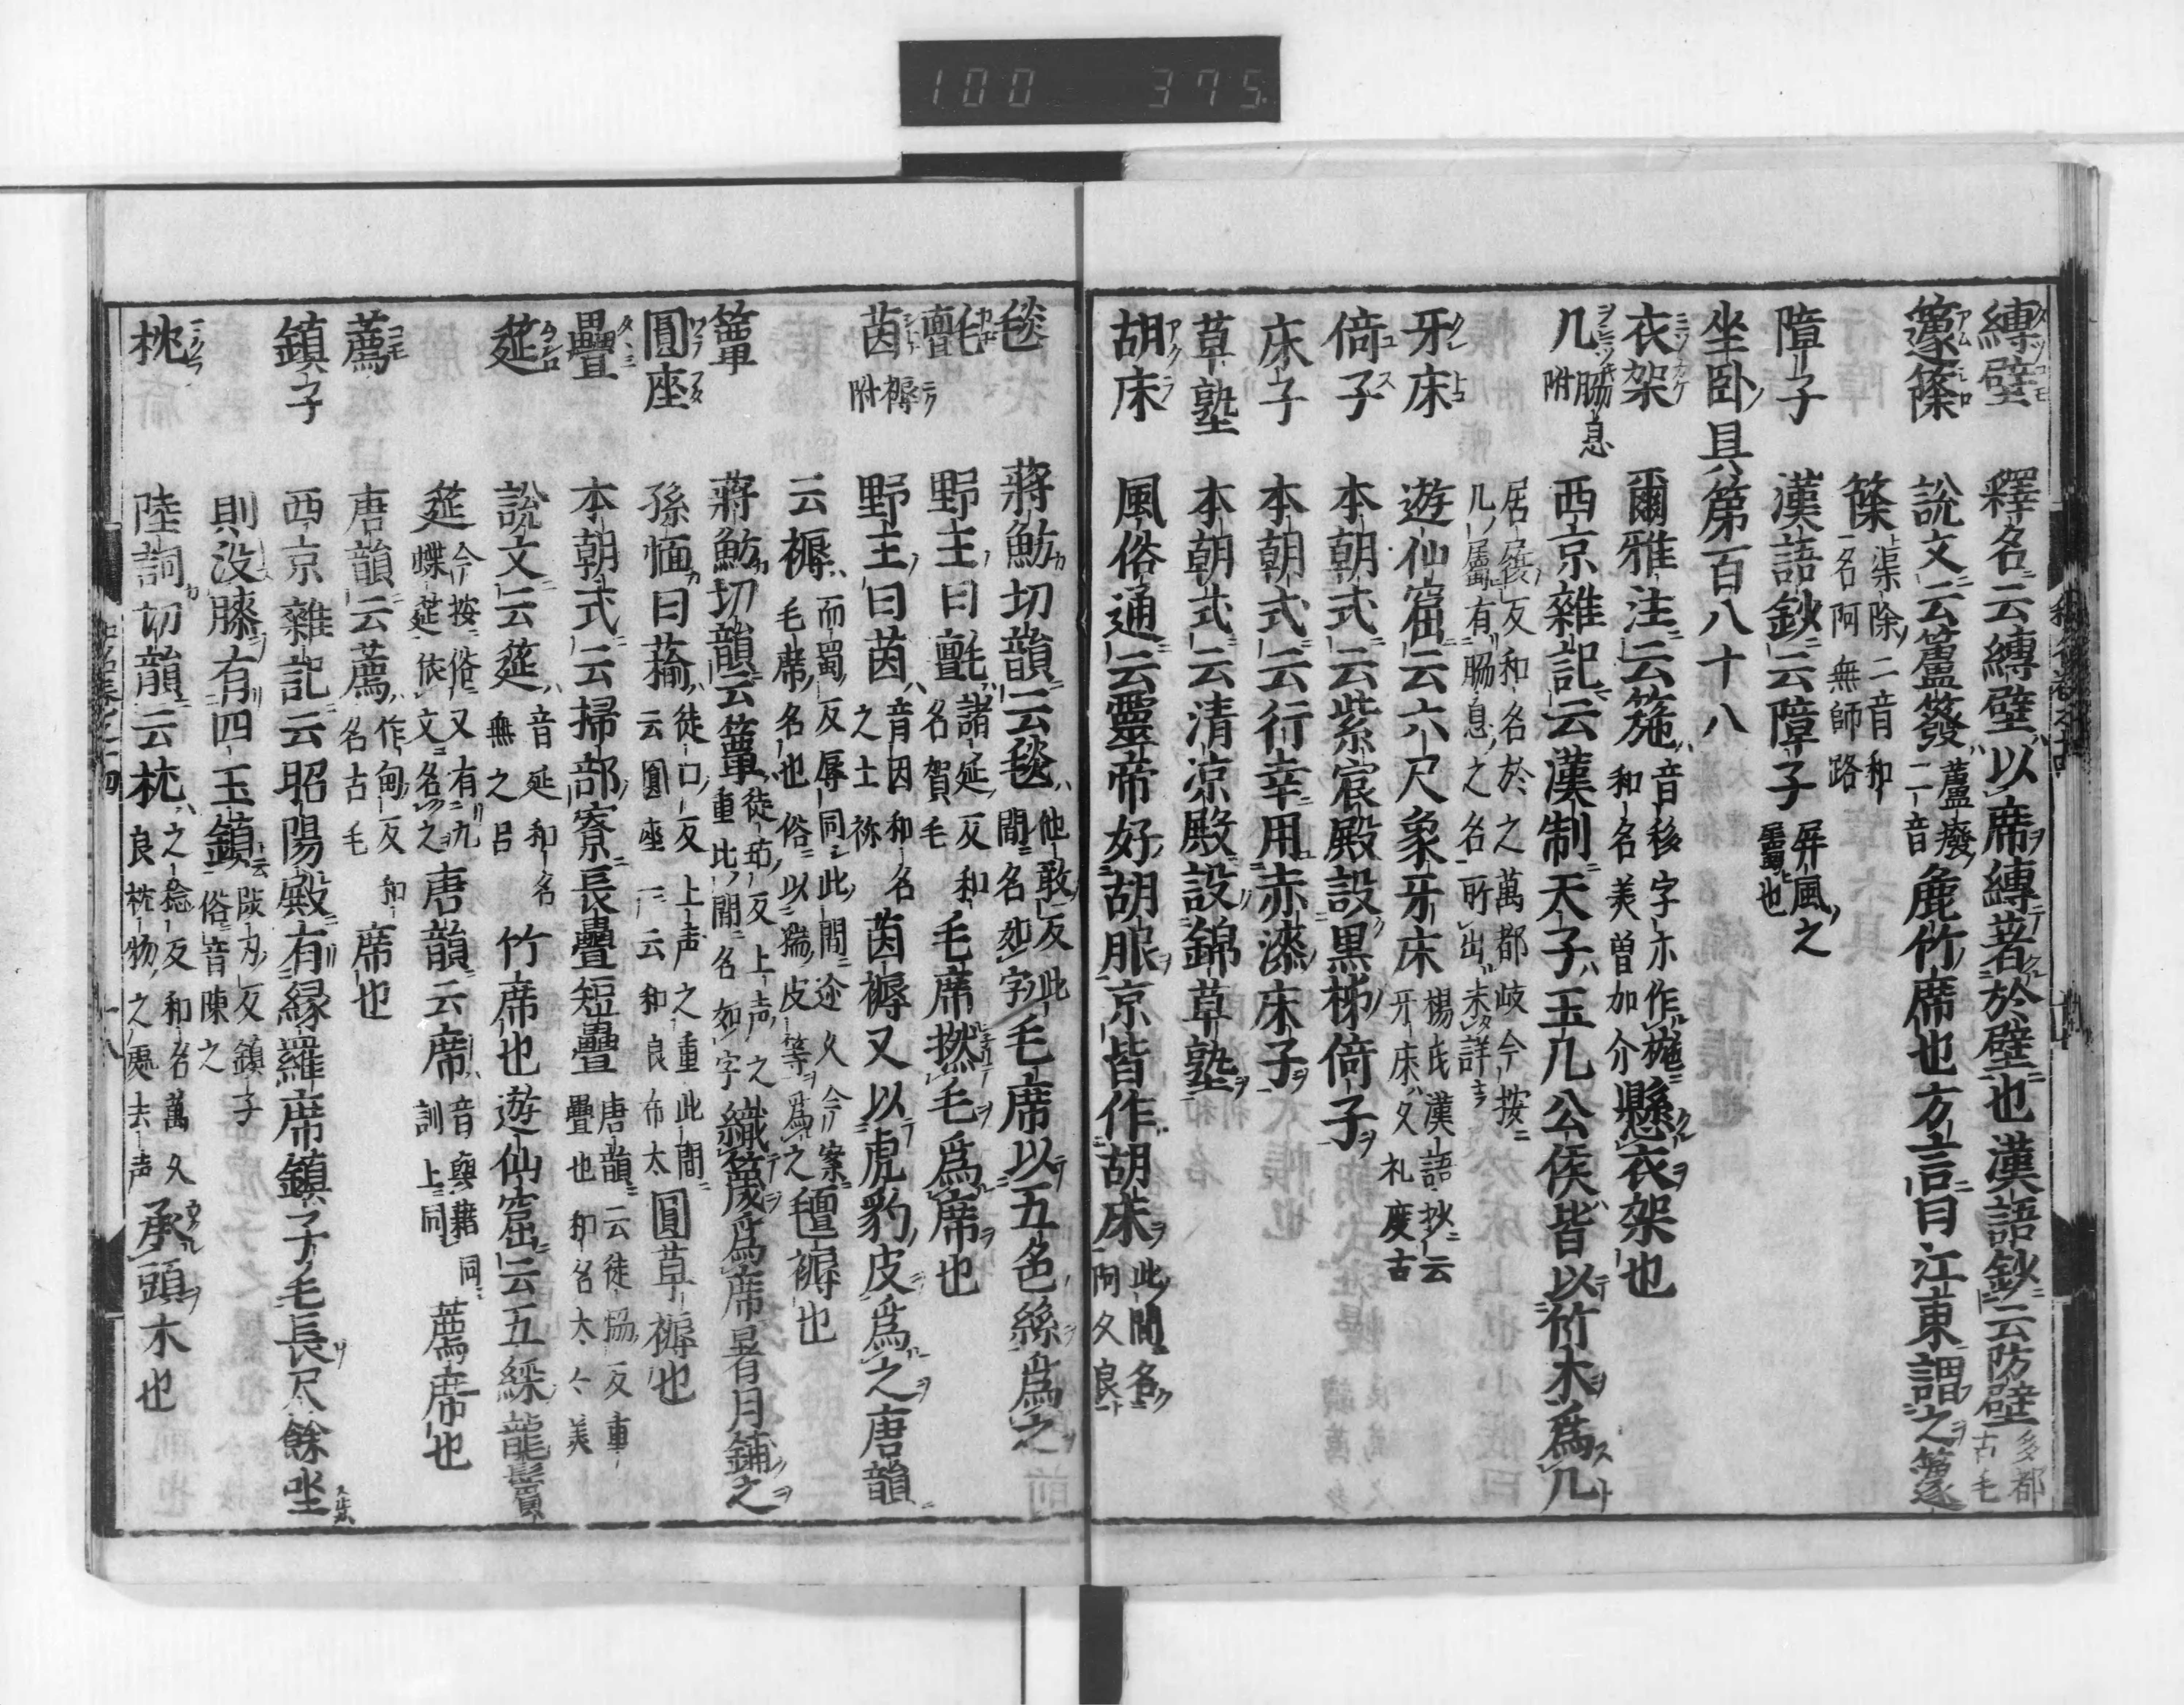 100 375
縛壁 釋名云縛壁以席縛著於壁也漢語鈔云防壁多都古毛
籧篨 說文云籚䉬蘆廢二音麁竹席也方言曰江東謂之籧
篨渠除二音和一名阿無師路
障子 漢語鈔云障子屏風之屬也
坐卧具第百八十八
衣架 爾雅注云箷音移字亦作椸和名美曽加介懸衣架也
几脇息附 西京雜記云漢制天子玉几公侯皆以竹木爲几
居履反和名於之萬都岐今按几屬有脇息之名所出未詳
牙床 遊仙窟云六尺象牙床楊氏漢語抄云牙床久礼度古
倚子 本朝式云紫宸殿設黒柹倚子
床子 本朝式云行幸用赤漆床子
草墪 本朝式云清凉殿設錦草墪
胡床 風俗通云靈帝好胡服京皆作胡床此間名阿久良
毯 蔣魴切韻云毯他敢反此間名如字毛席以五色絲爲之
氊 野王曰氊諸延反和名賀毛毛席撚毛爲席也
茵褥附 野王曰茵音因和名之土祢茵褥又以虎豹皮爲之唐韻
云褥而蜀反辱同此間迩久今案毛席名也俗以猯皮等爲之氊褥也
簟 蔣魴切韻云簟徒玷反上声之重此間名如字織篾爲席暑月鋪之
圓座 孫愐曰䕆徒口反上声之重此間云圓座一云和良布太圓草褥也
疊 本朝式云掃部寮長疊短疊唐韻云徒協反重疊也和名太々美
莚 說文云莚音延和名無之呂竹席也遊仙窟云五綵龍鬚
莚今按俗又有九蝶莚依文名之唐韻云席音與藉同訓上同薦席也
薦 唐韻云薦作甸反和名古毛席也
鎮子 西京雜記云昭陽殿有縁羅席鎮子毛長尺餘坐
則没膝有四玉鎮陟刃反鎮子俗音陳之
枕 陸詞切韻云枕之稔反和名萬久良枕物之處去声承頭木也
十八